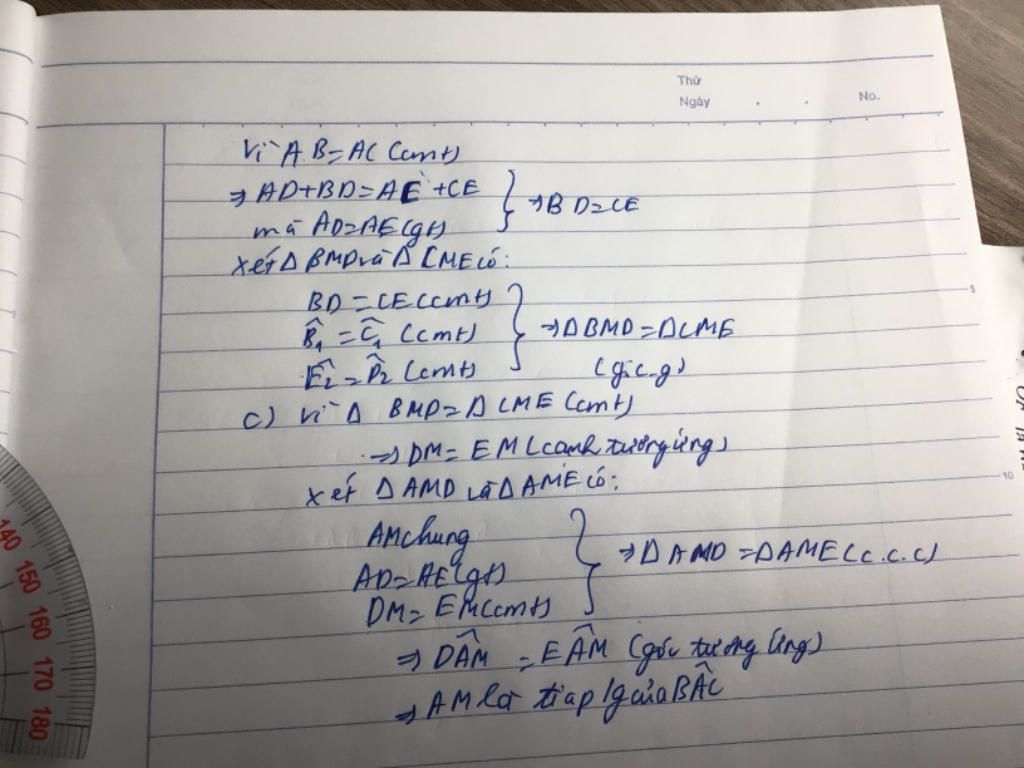 Thứ
Ngày . . No.
Vì AB=AC (cmt)
⇒ AD+BD=AE+CE
mà AD=AE(gt)
} ⇒ BD=CE
xét Δ BMD và Δ CME có:
BD=CE(cmt)
B̂₁ = Ĉ₁ (cmt)
Ê₂ = D̂₂ (cmt)
} ⇒ΔBMD=ΔCME
(g.c.g)
5
c) Vì Δ BMD=ΔCME (cmt)
⇒ DM= EM (cạnh tương ứng)
xét ΔAMD và ΔAME có:
10
AM chung
AD=AE(gt)
DM= EM(cmt)
} ⇒ΔAMD =ΔAME(c.c.c)
⇒ DÂM = EÂM (góc tương ứng)
⇒ AM là tia p/g của BÂC
140
150
160
170
180